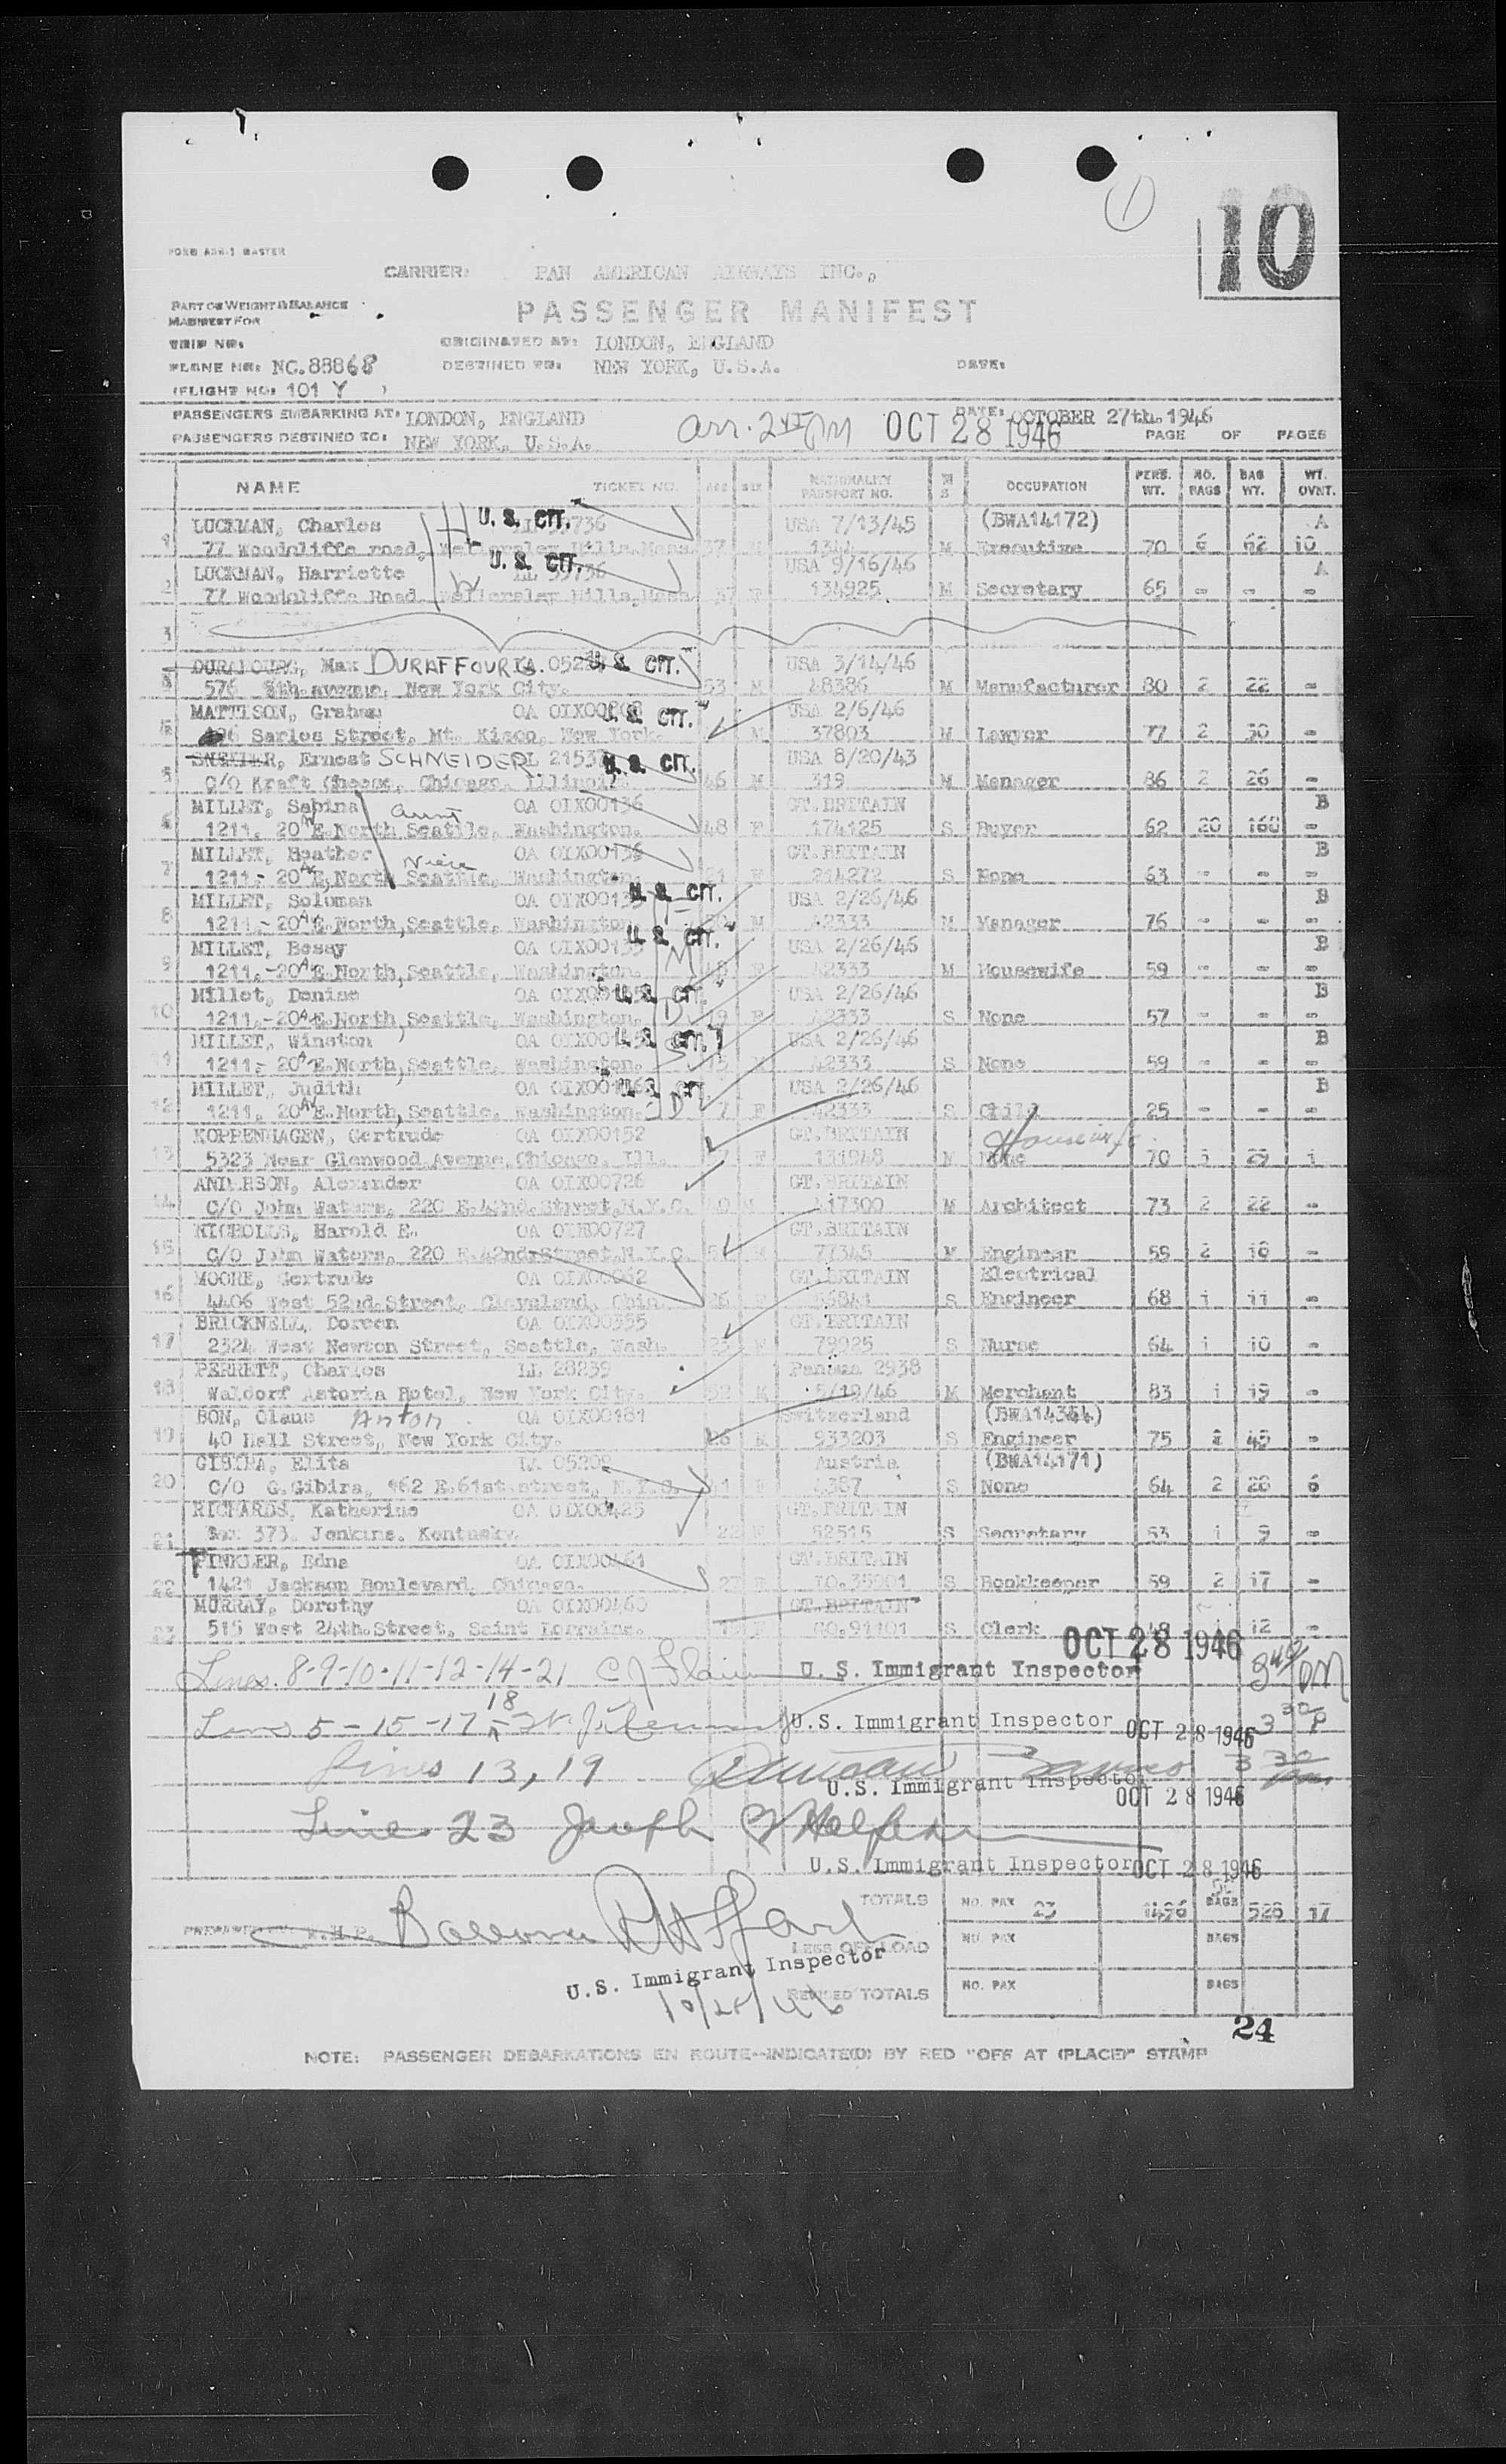 ①
10
FORM ADW-1 MASTER
CARRIER: PAN AMERICAN AIRWAYS INC.,
PART OF WEIGHT & BALANCE
MANIFEST FOR
PASSENGER MANIFEST
TRIP NO:
ORIGINATED AT: LONDON, ENGLAND
PLANE NO: NC.88868
DESTINED TO: NEW YORK, U.S.A.
DATE:
(FLIGHT NO: 101 Y )
PASSENGERS EMBARKING AT: LONDON, ENGLAND
DATE: OCTOBER 27th.1946
PASSENGERS DESTINED TO: NEW YORK, U.S.A.
arr. PM OCT 28 1946
PAGE OF PAGES
NAME TICKET NO. AGE SEX NATIONALITY PASSPORT NO. M S OCCUPATION PERS. WT. NO. BAGS BAG WT. WT. OVNT.
LUCKMAN, Charles H U. S. CIT. USA 7/13/45 (BWA14172) A
1 77 Woodcliffe road, Wellersley Hills, Mass. 37 M M Executive 70 6 62 10
LUCKMAN, Harriette W U. S. CIT. USA 9/16/46 A
2 77 Woodcliffe Road, Wellersley Hills, Mass. 134925 M Secretary 65 - - -
3
Max DURAFFOURG U. S. CIT. USA 3/14/46
4 576 5th avenue, New York City. 53 M 48386 M Manufacturer 80 2 22 -
MATTISON, Graham U. S. CIT. USA 2/6/46
Sarles Street, Mt. Kisco, New York. M 37803 M Lawyer 77 2 30 -
Ernest SCHNEIDER U. S. CIT. USA 8/20/43
5 C/O Kraft Cheese, Chicago, Illinois. 46 M 319 M Manager 86 2 26 -
MILLET, Sabina Aunt OA OIX00136 GT.BRITAIN B
6 1211, 20 Av E.North Seattle, Washington. 48 F 174125 S Buyer 62 20 160 -
MILLET, Heather Niece OA OIX00136 GT.BRITAIN B
7 1211,- 20 Av E.North Seattle, Washington. 21 F 214272 S None 63 - - -
MILLET, Soloman U. S. CIT. USA 2/26/46 B
8 1211,-20 Av E.North, Seattle, Washington. M 42333 M Manager 76 - - -
MILLET, Bessy OA OIX00135 U. S. CIT. USA 2/26/46 B
9 1211,-20 Av E.North, Seattle, Washington. M F 42333 M Housewife 59 - - -
Millet, Denise U. S. CIT. USA 2/26/46 B
10 1211,-20 Av E.North, Seattle, Washington. D 19 F 42333 S None 57 - - -
MILLET, Winston U. S. CIT. USA 2/26/46 B
11 1211,- 20 Av E.North, Seattle, Washington. S 15 M 42333 S None 59 - - -
MILLET, Judith U. S. CIT. USA 2/26/46 B
12 1211, 20 Av E.North, Seattle, Washington. D 7 F 42333 S Child 25 - - -
KOPPENHAGEN, Gertrude OA OIX00152 GT.BRITAIN Housewife
13 5323 Near Glenwood Avenue, Chicago, Ill. F 131948 M None 70 3 29 1
ANDERSON, Alexander OA OIX00726 GT.BRITAIN
14 C/O John Waters, 220 E.42nd.Street,N.Y.C. M 417300 M Architect 73 2 22 -
NICHOLLS, Harold E. OA OIX00727 GT.BRITAIN
15 C/O John Waters, 220 E.42nd.Street,N.Y.C. M 77345 M Engineer 59 2 18 -
MOORE, Gertrude OA OIX00062 GT.BRITAIN Electrical
16 4406 West 52nd.Street, Cleveland, Ohio. 26 S Engineer 68 1 11 -
BRICKNELL, Doreen OA OIX00355 GT.BRITAIN
17 2324 West Newton Street, Seattle, Wash. F 79925 S Nurse 64 1 10 -
PERRETT, Charles LL 28239 Panama 2938
18 Waldorf Astoria Hotel, New York City. M 5/19/46 M Merchant 83 1 19 -
BON, Claus Anton OA OIX00181 Switzerland (BWA14344)
19 40 Hall Street, New York City. M 933203 S Engineer 75 2 45 -
GIBIRA, Elita Austria (BWA14171)
20 C/O G.Gibira, 162 E.61st.street, N.Y.C. F 4387 S None 64 2 28 6
RICHARDS, Katherine OA OIX00425 GT.BRITAIN
21 Box 373. Jenkins. Kentucky. 22 F 52515 S Secretary 53 1 9 -
TINKLER, Edna OA OIX00461 GT.BRITAIN
22 1421 Jackson Boulevard, Chicago. 27 F S Bookkeeper 59 2 17 -
MURRAY, Dorothy OA OIX00460 GT.BRITAIN
23 515 West 24th.Street, Saint Lorraine. F S Clerk 1 12 -
OCT 28 1946
Lines 8-9-10-11-12-14-21 U. S. Immigrant Inspector PM
Lines 5-15-17-18 U.S. Immigrant Inspector OCT 28 1946 3 30 P
Lines 13, 19 Duncan U.S. Immigrant Inspector OCT 28 1946 3 30 pm
Line 23 Joseph U.S. Immigrant Inspector OCT 28 1946
TOTALS NO. PAX 23 1496 BAGS 528 17
PREPARED BY
LESS OFFLOAD NO. PAX BAGS
U.S. Immigrant Inspector
10/28/46
REVISED TOTALS NO. PAX BAGS
24
NOTE: PASSENGER DEBARKATIONS EN ROUTE--INDICATE(D) BY RED "OFF AT (PLACE)" STAMP